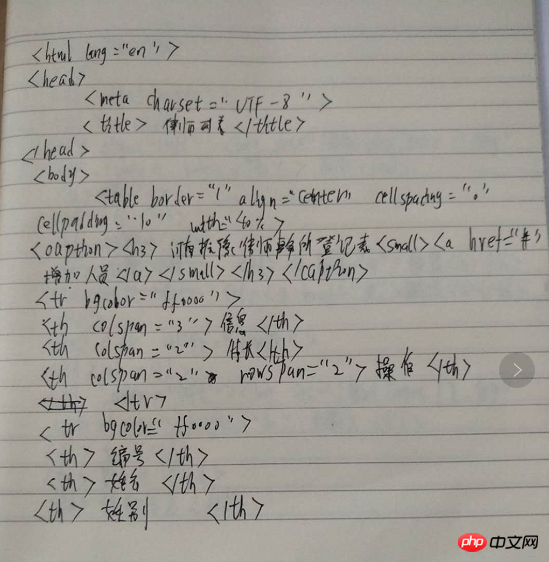 <html lang="en">
<head>
<meta charset="UTF-8">
<thtle> 律师列表 </thtle>
</head>
<body>
<table border="1" align="center" cellspacing="0"
cellpadding="10" width="40%">
<capthon><h3> 律师事务所登记表 <small><a href="#">
增加人员</a></small></h3></capthon>
<tr bgcolor="ff0000">
<th colspan="3">信息</th>
<th colspan="2">特长</th>
<th colspan="2" rowspan="2">操作</th>
</tr>
<tr bgcolor="ff0000">
<th>编号</th>
<th>姓名</th>
<th>姓别</th>
php中文网